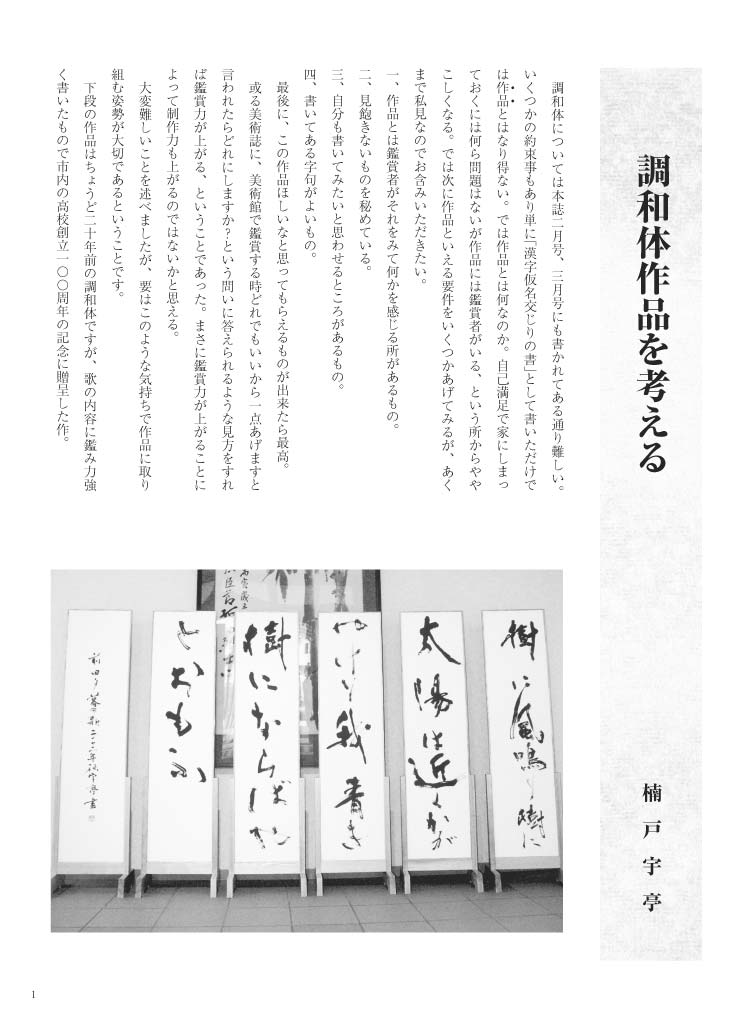 調和体作品を考える
楠戸宇亭
調和体については本誌二月号、三月号にも書かれてある通り難しい。
いくつかの約束事もあり単に「漢字仮名交じりの書」として書いただけで
は作品とはなり得ない。では作品とは何なのか。自己満足で家にしまっ
ておくには何ら問題はないが作品には鑑賞者がいる、という所からやや
こしくなる。では次に作品といえる要件をいくつかあげてみるが、あく
まで私見なのでお含みいただきたい。
一、作品とは鑑賞者がそれをみて何かを感じる所があるもの。
二、見飽きないものを秘めている。
三、自分も書いてみたいと思わせるところがあるもの。
四、書いてある字句がよいもの。
最後に、この作品ほしいなと思ってもらえるものが出来たら最高。
或る美術誌に、美術館で鑑賞する時どれでもいいから一点あげますと
言われたらどれにしますか?という問いに答えられるような見方をすれ
ば鑑賞力が上がる、ということであった。まさに鑑賞力が上がることに
よって制作力も上がるのではないかと思える。
大変難しいことを述べましたが、要はこのような気持ちで作品に取り
組む姿勢が大切であるということです。
下段の作品はちょうど二十年前の調和体ですが、歌の内容に鑑み力強
く書いたもので市内の高校創立一〇〇周年の記念に贈呈した作。
樹に風鳴り樹に
太陽は近くかが
やけり我青き
樹にならばや
とおもふ
前田夕暮の歌
1